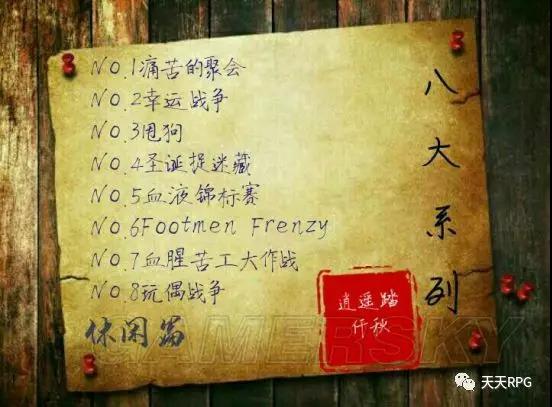 八大系列
NO.1痛苦的聚会
NO.2幸运战争
NO.3甩狗
NO.4圣诞捉迷藏
NO.5血液锦标赛
NO.6Footmen Frenzy
NO.7血腥苦工大作战
NO.8玩偶战争
休闲篇
逍遥踏
仟秋
GAMERSKY
天天RPG